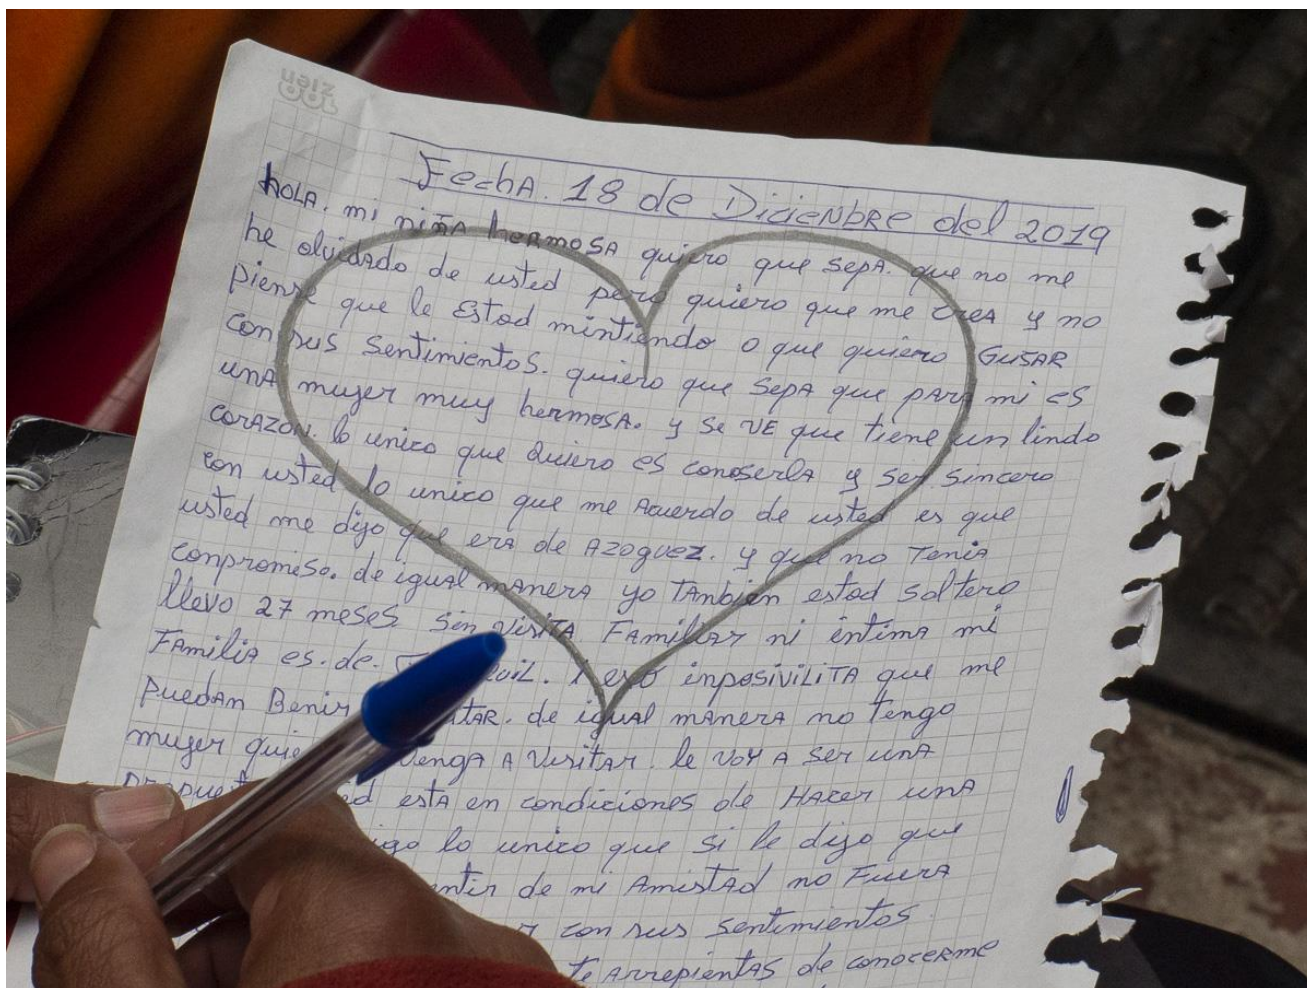 100
zien
Fecha. 18 de Dicienbre del 2019
hola. mi niña hermosa quiero que sepa. que no me
he olvidado de usted pero quiero que me crea y no
piense que le Estod mintiendo o que quiero Gusar
con sus sentimientos. quiero que sepa que para mi es
una mujer muy hermosa. y se ve que tiene un lindo
corazon. lo unico que Quiero es conoserla y ser sincero
con usted lo unico que me acuerdo de usted es que
usted me dijo que era de Azoguez. y que no Tenia
conpromiso. de igual manera yo tanbien estod soltero
llevo 27 meses sin visita Familiar ni intima mi
Familia es. de. inposivilita que me
puedan Benir de igual manera no tengo
mujer venga a visitar. le voy a ser una
esta en condiciones de Hacer una
lo unico que si le dijo que
de mi Amistad no Fuera
con sus sentimientos
te arrepientas de conocerme